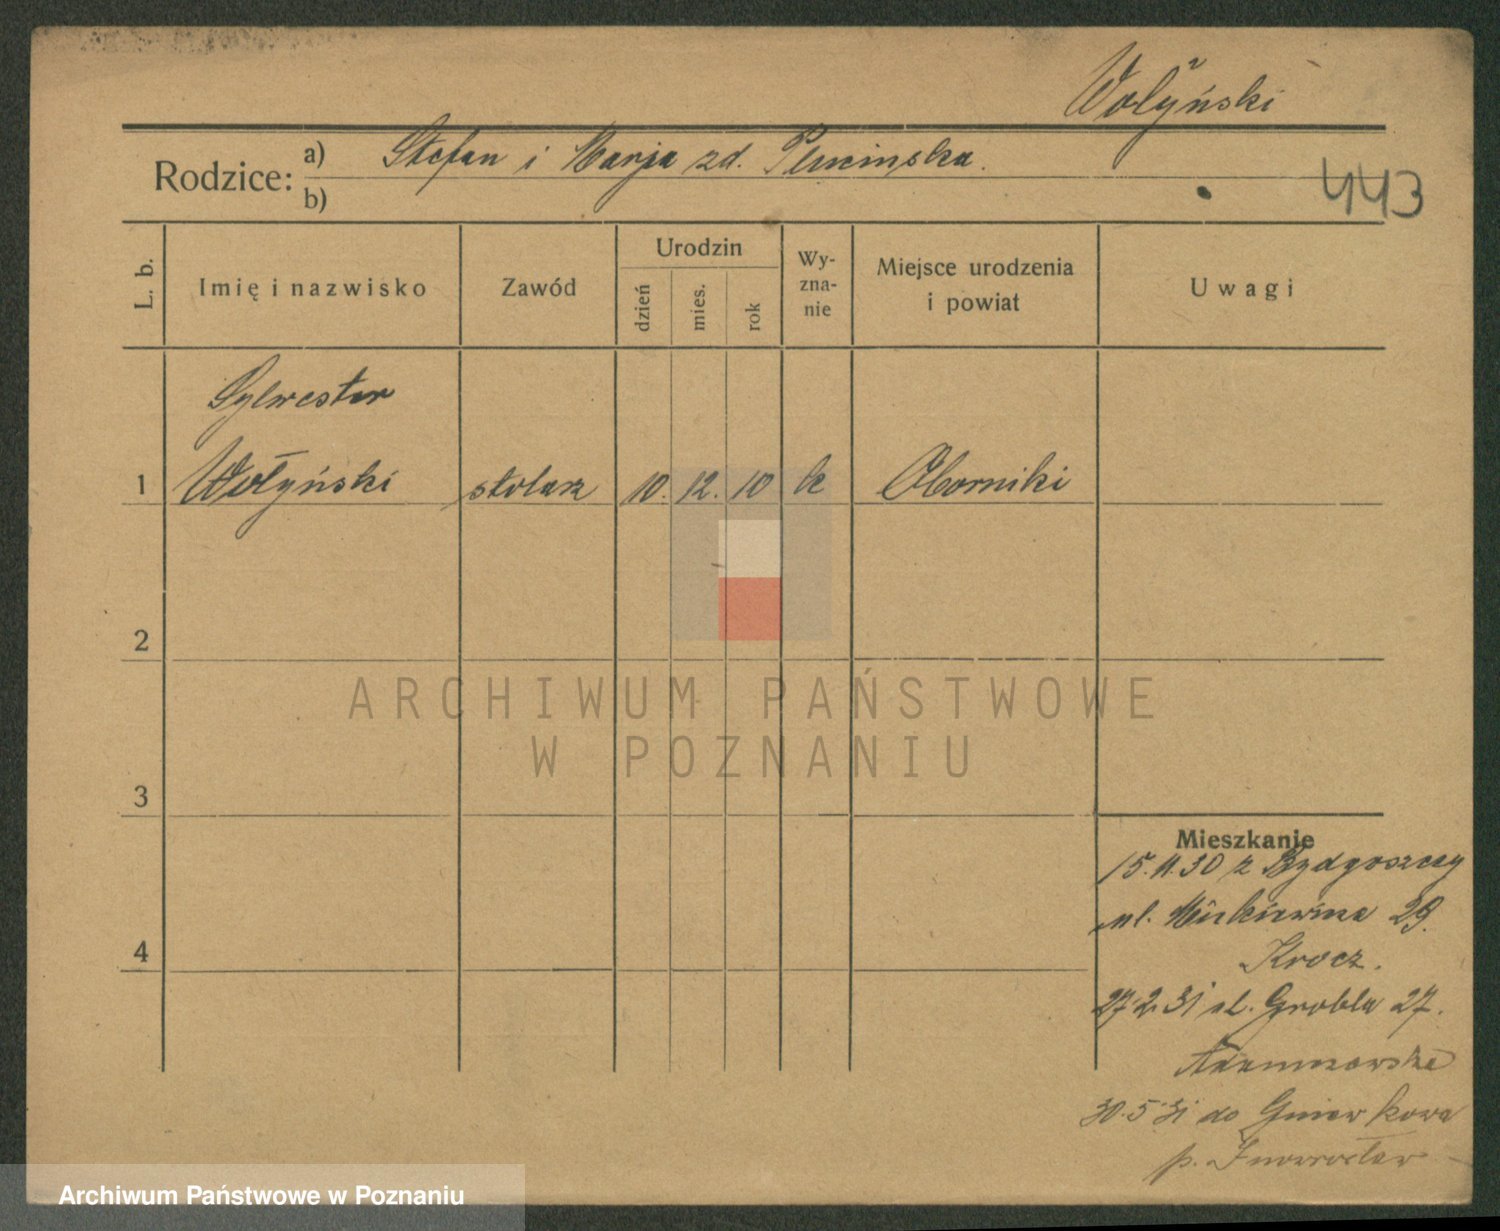 Wołyński
Rodzice: a) Stefan i Marja zd. Plucinska.
b)
443
L. b.
Imię i nazwisko
Zawód
Urodzin
dzień
mies.
rok
Wy-
zna-
nie
Miejsce urodzenia
i powiat
Uwagi
Sylwester
1 Wołyński stolarz 10. 12. 10 k Oborniki
2
ARCHIWUM PAŃSTWOWE
W POZNANIU
3
Mieszkanie
15.11.30 z Bydgoszczy
ul. Mickiewicza 29.
Krocz.
4
27.2.31 ul. Grobla 27.
Adamczewska
30.5.31 do Gniewkowa
p. Inowrocław
Archiwum Państwowe w Poznaniu